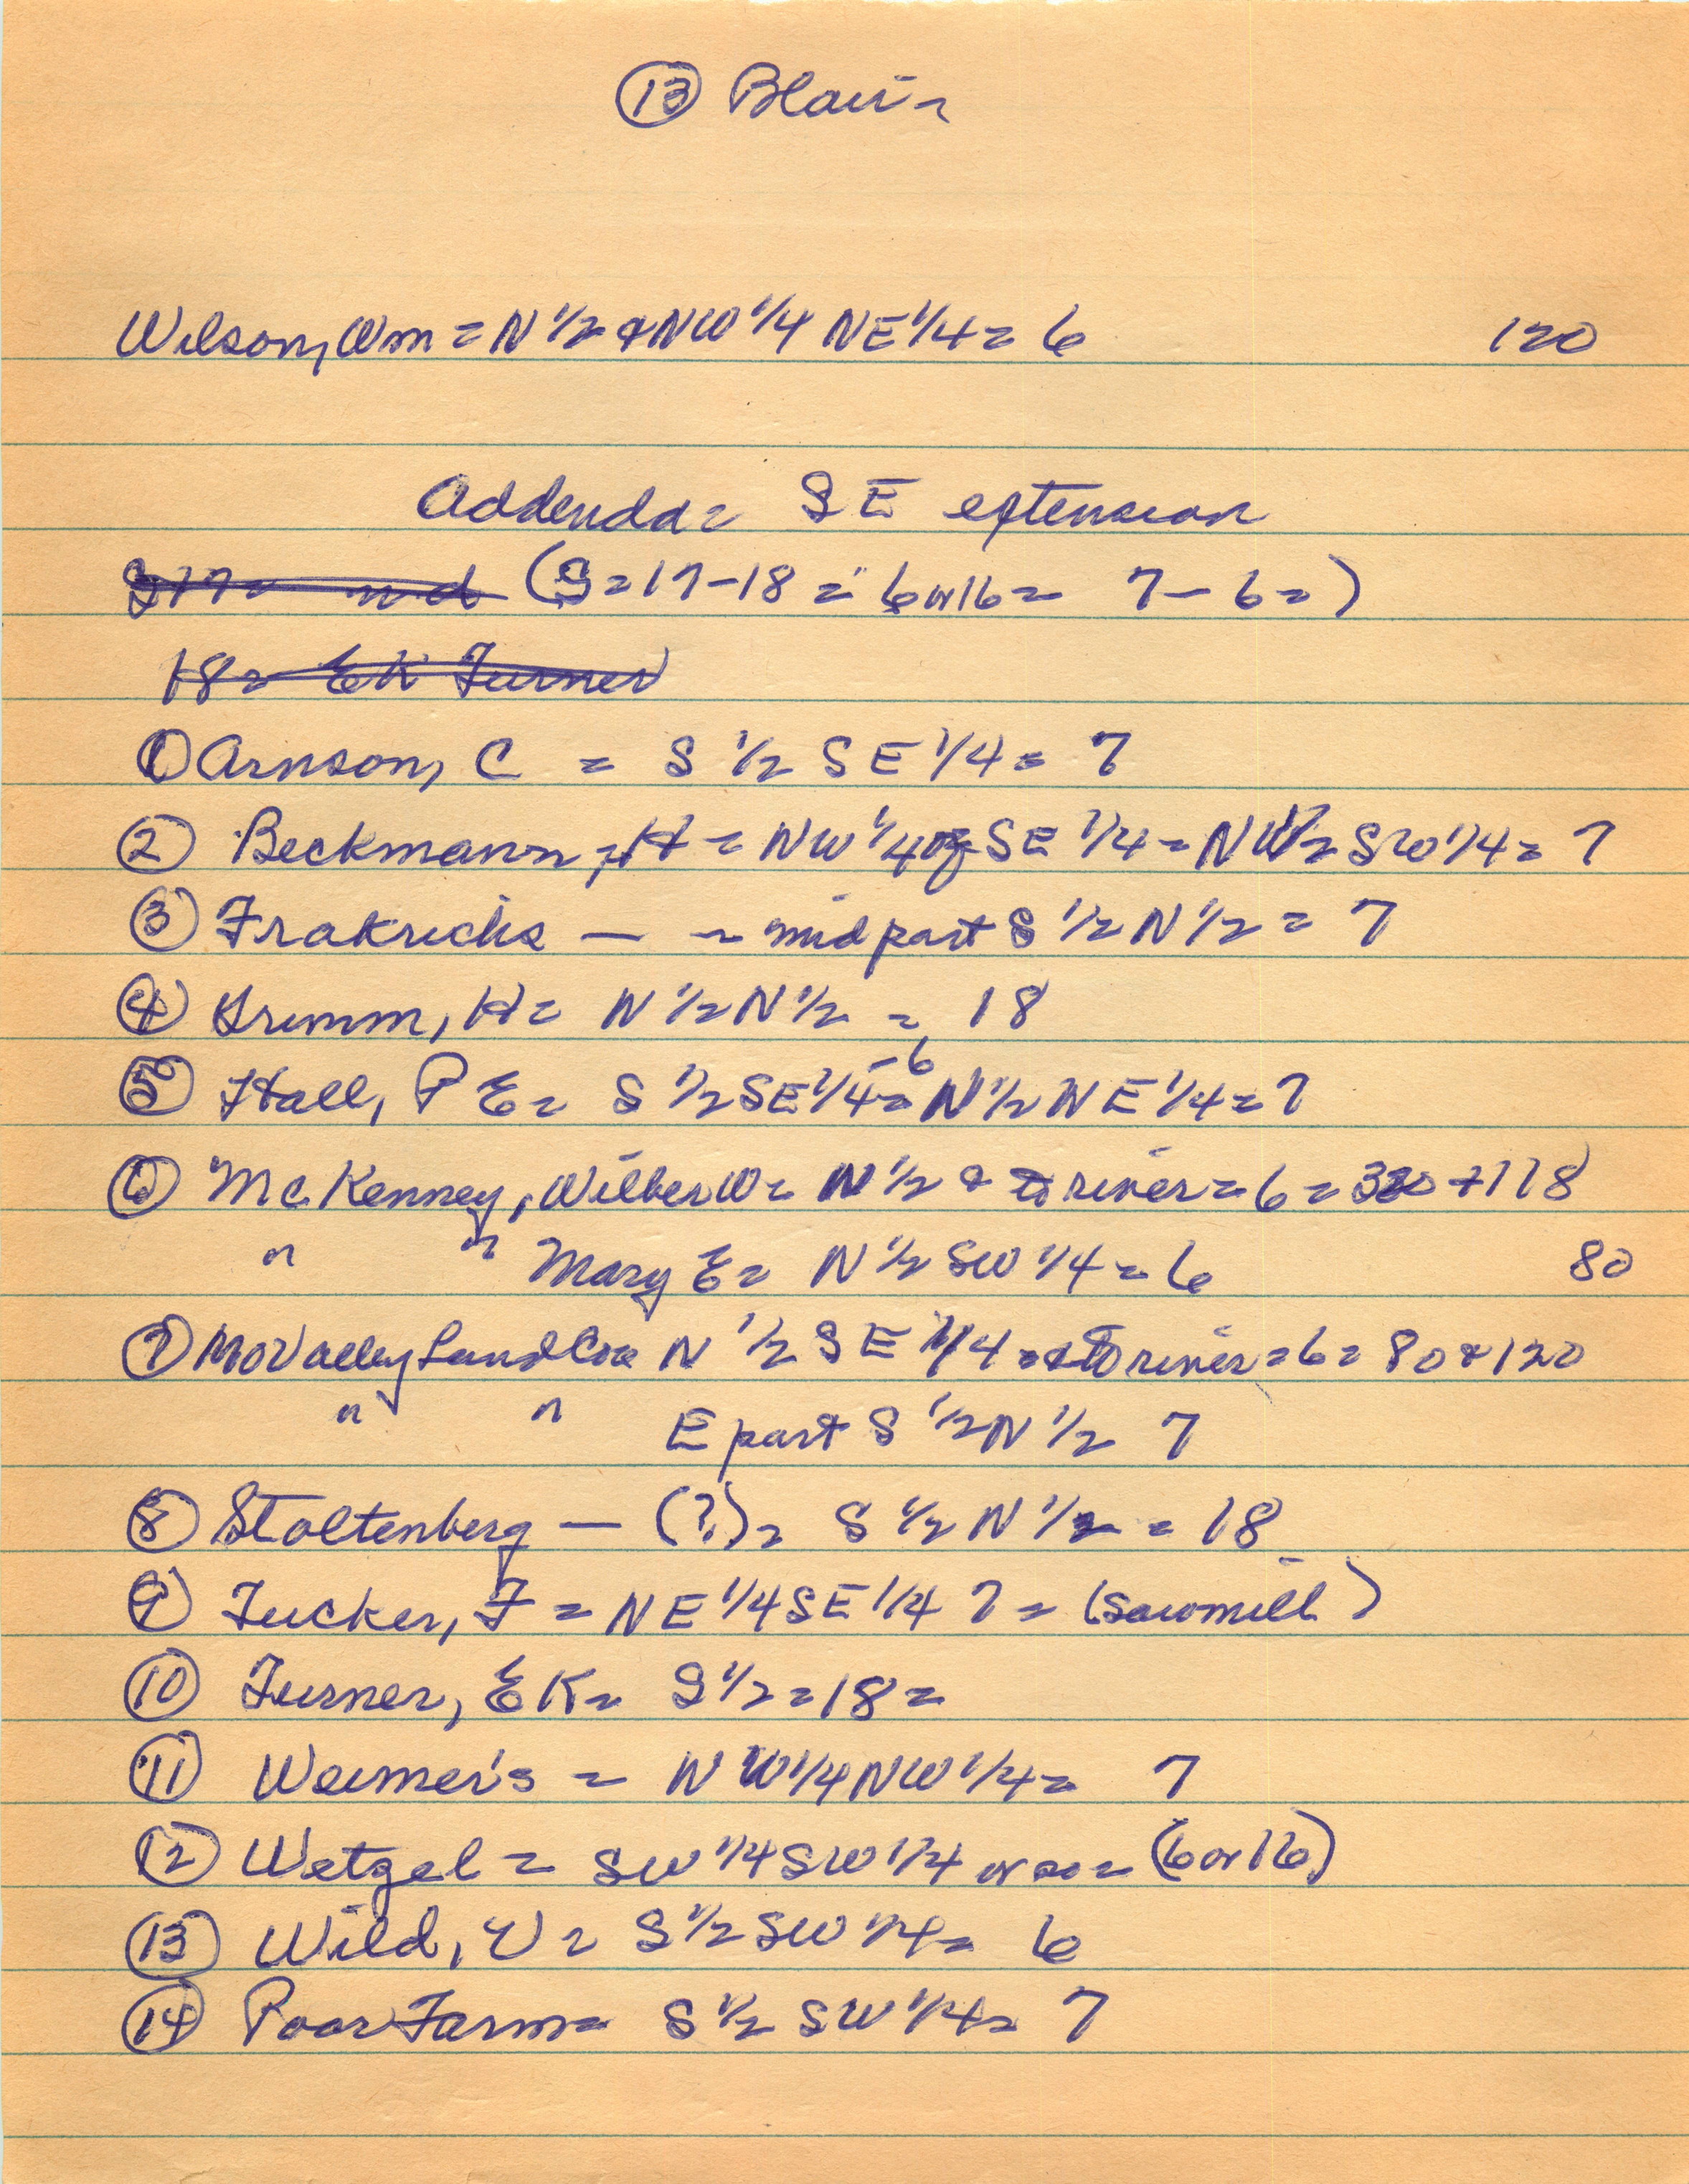 (13) Blair =
Wilson, Wm = N 1/2 & NW 1/4 NE 1/4 = 6 120
Addenda = SE extension
S17 = (S = 17-18 = 6 or 16 = 7 - 6 = )
18 = EK Turner
(1) Arnson, C = S 1/2 SE 1/4 = 7
(2) Beckmann, H = NW 1/4 of SE 1/4 = N 1/2 SW 1/4 = 7
(3) Frakrichs — = mid part S 1/2 N 1/2 = 7
(4) Grimm, H = N 1/2 N 1/2 = 18
(5) Hall, P E = S 1/2 SE 1/4 = 6 N 1/2 NE 1/4 = 7
(6) McKenney, Wilber W = N 1/2 & to river = 6 = 320 + 118
" " Mary E = N 1/2 SW 1/4 = 6 80
(7) Mo Valley Land Co = N 1/2 SE 1/4 = & to river = 6 = 80 & 120
" " E part S 1/2 N 1/2 7
(8) Stoltenberg — (?) = S 1/2 N 1/2 = 18
(9) Tucker, F = NE 1/4 SE 1/4 7 = (sawmill)
(10) Turner, EK = S 1/2 = 18 =
(11) Weimer's = NW 1/4 NW 1/4 = 7
(12) Wetzel = SW 1/4 SW 1/4 or so = (6 or 16)
(13) Wild, V = S 1/2 SW 1/4 = 6
(14) Poor Farm = S 1/2 SW 1/4 = 7